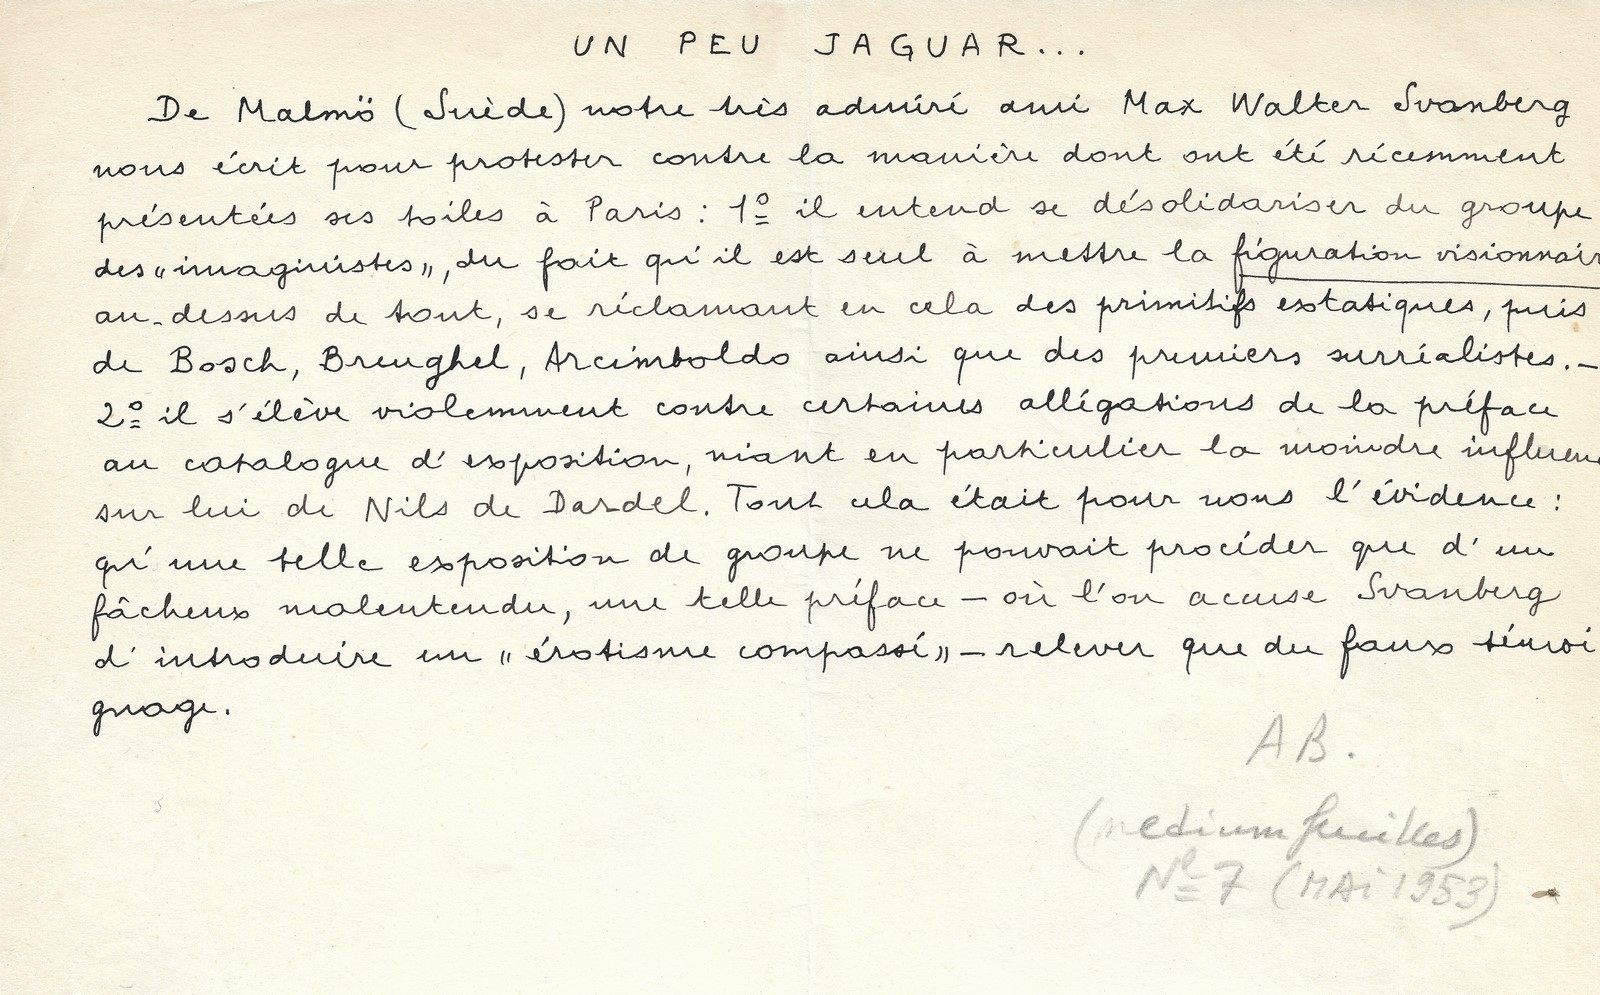 UN PEU JAGUAR...
De Malmö (Suède) notre très admiré ami Max Walter Svanberg
nous écrit pour protester contre la manière dont ont été récemment
présentées ses toiles à Paris : 1º il entend se désolidariser du groupe
des "imaginistes", du fait qu'il est seul à mettre la figuration visionnair
au-dessus de tout, se réclamant en cela des primitifs extatiques, puis
de Bosch, Breughel, Arcimboldo ainsi que des premiers surréalistes.–
2º il s'élève violemment contre certaines allégations de la préface
au catalogue d'exposition, niant en particulier la moindre influenc
sur lui de Nils de Dardel. Tout cela était pour nous l'évidence :
qu'une telle exposition de groupe ne pouvait procéder que d'un
fâcheux malentendu, une telle préface – où l'on accuse Svanberg
d'introduire un "érotisme compassé" – relever que du faux témoi
gnage.
AB.
(medium feuilles)
Nº 7 (MAi 1953)